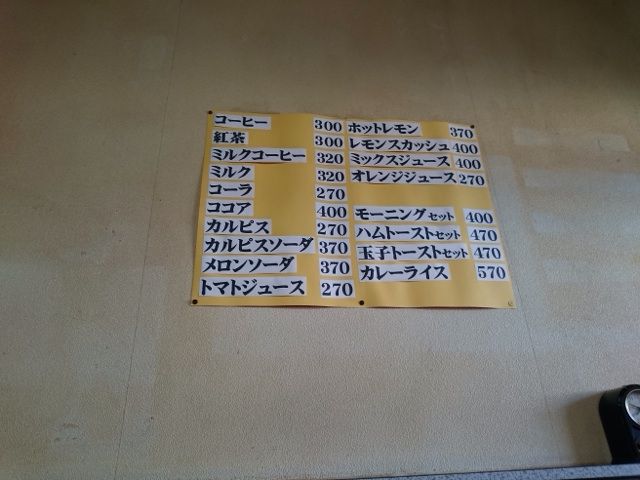 コーヒー 300
紅茶 300
ミルクコーヒー 320
ミルク 320
コーラ 270
ココア 400
カルピス 270
カルピスソーダ 370
メロンソーダ 370
トマトジュース 270
ホットレモン 370
レモンスカッシュ 400
ミックスジュース 400
オレンジジュース 270
モーニングセット 400
ハムトーストセット 470
玉子トーストセット 470
カレーライス 570